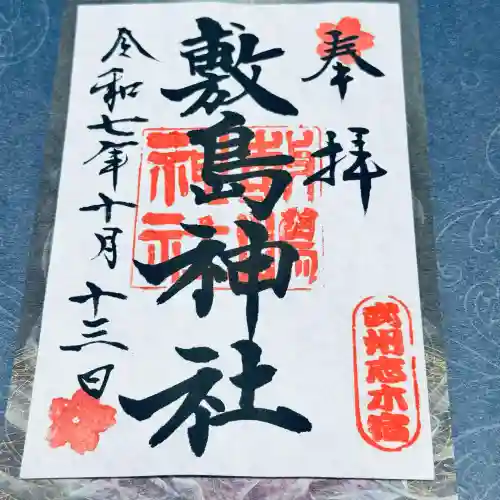 奉拝
敷島神社
令和七年十月十三日
武州志木宿